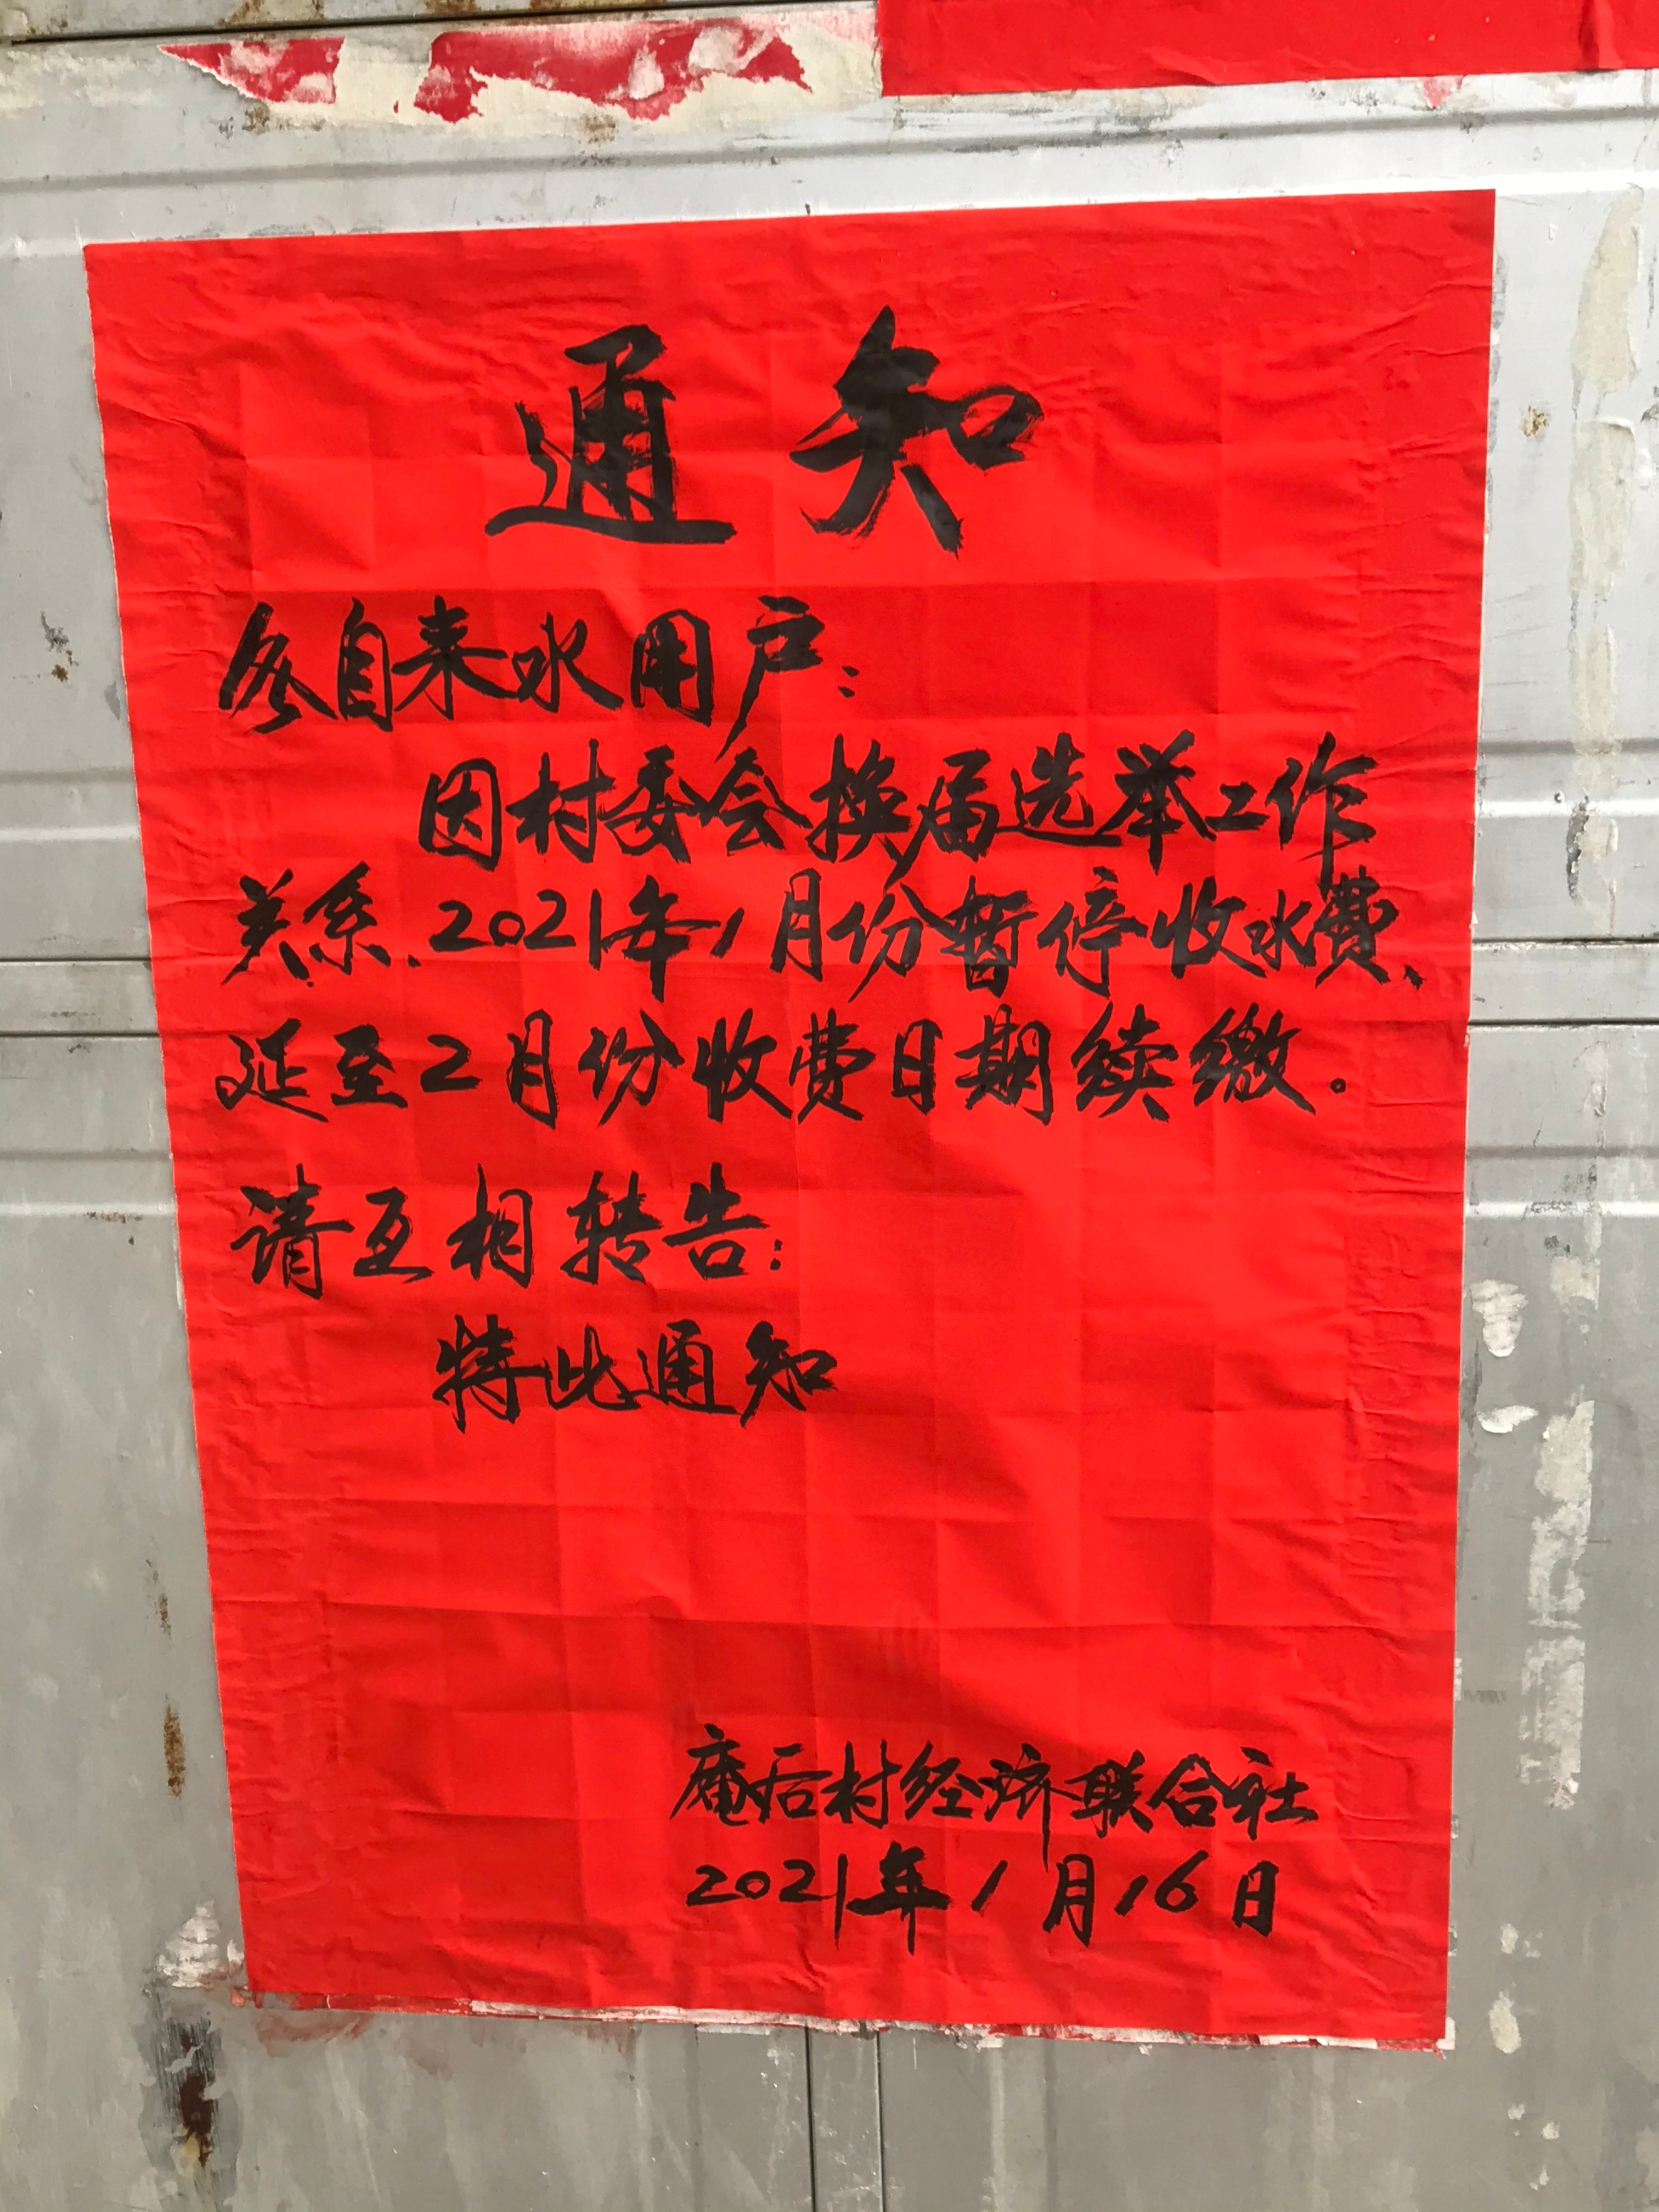 通知
各自来水用户:
因村委会换届选举工作
关系.2021年1月份暂停收水费、
延至2月份收费日期续缴。
请互相转告:
特此通知
庵后村经济联合社
2021年1月16日